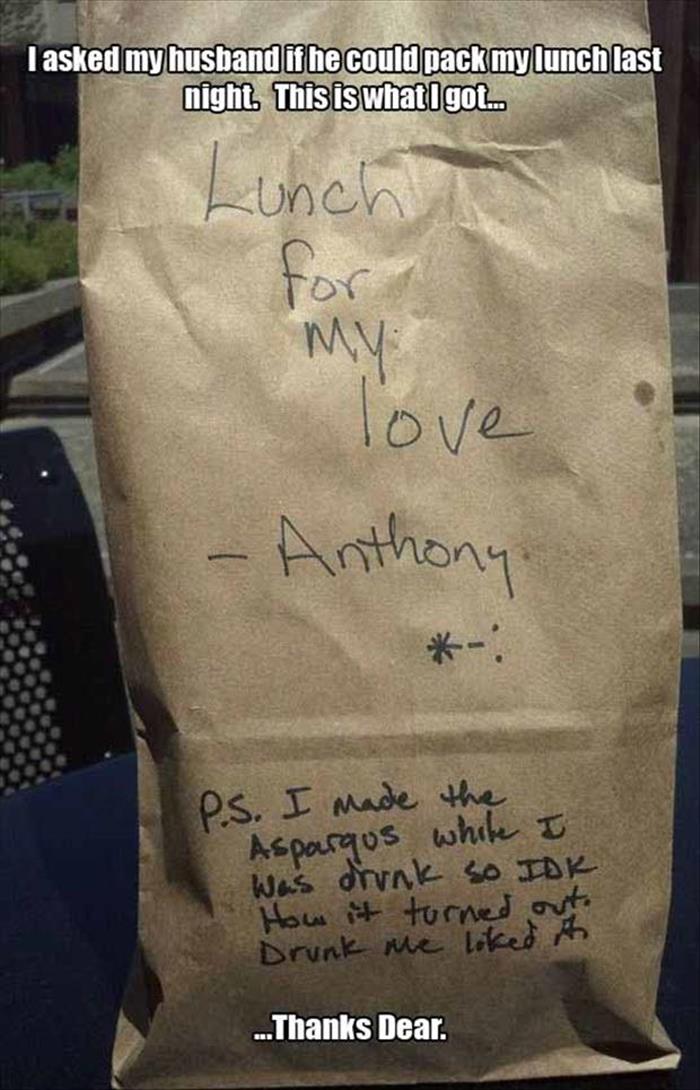 I asked my husband if he could pack my lunch last
night. This is what I got...
Lunch
for
my
love
- Anthony
*-:
P.S. I made the
Aspargus while I
was drunk so IDK
How it turned out.
Drunk me liked it
...Thanks Dear.